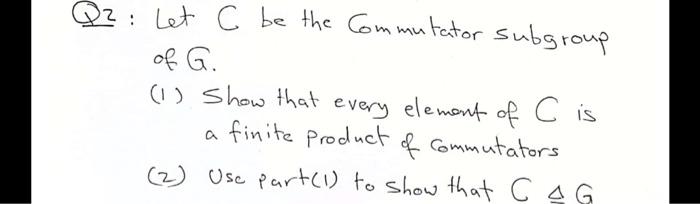 Q2 : Let C be the Commutator subgroup
of G.
(1) Show that every element of C is
a finite product of Commutators
(2) Use part(1) to show that C ⊴ G